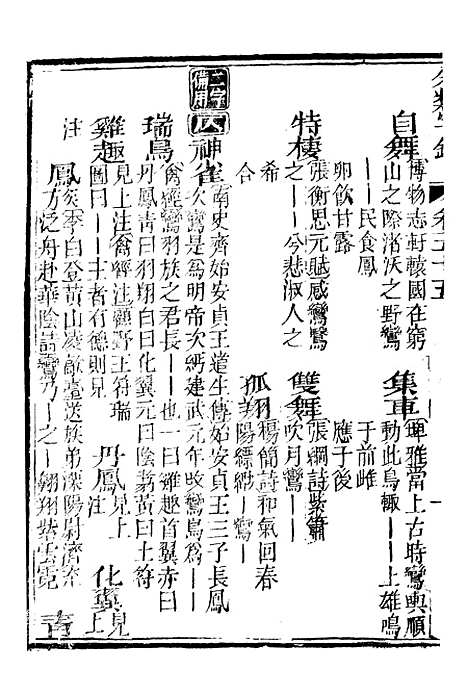 自舞
博物志軒轅國在窮
山之際渚沃之野鸞
丨丨民食鳳
卵飲甘露
集車
埤雅當上古時鸞輿順
動此鳥輙丨丨上雄鳴
于前雌
應于後
特棲
張衡思元賦感鸞鷖
之丨丨今悲淑人之
希
合
雙舞
張綱詩紫簫
吹月鸞丨丨
孤翔
楊簡詩和氣回春
陽縹緲丨鸞丨
二字
備用
仄
神雀
南史齊始安貞王道生傳始安貞王三子長鳳
次鸞是為明帝次緬建武元年改鸞鳥為丨丨
瑞鳥
禽經鸞羽族之君長丨丨也一曰雞趣首翼赤曰
丹鳳青曰羽翔白曰化翼元曰陰翥黃曰土符
雞趣
見上注禽經注顧野王符瑞
圖曰丨丨王者有德則見
丹鳳
見上
注
化翼
見
上
注
鳳
李白登黃山凌歊臺送族弟溧陽尉濟充
方泛舟赴華陰詩鸞乃丨之丨翱翔紫雲霓
青